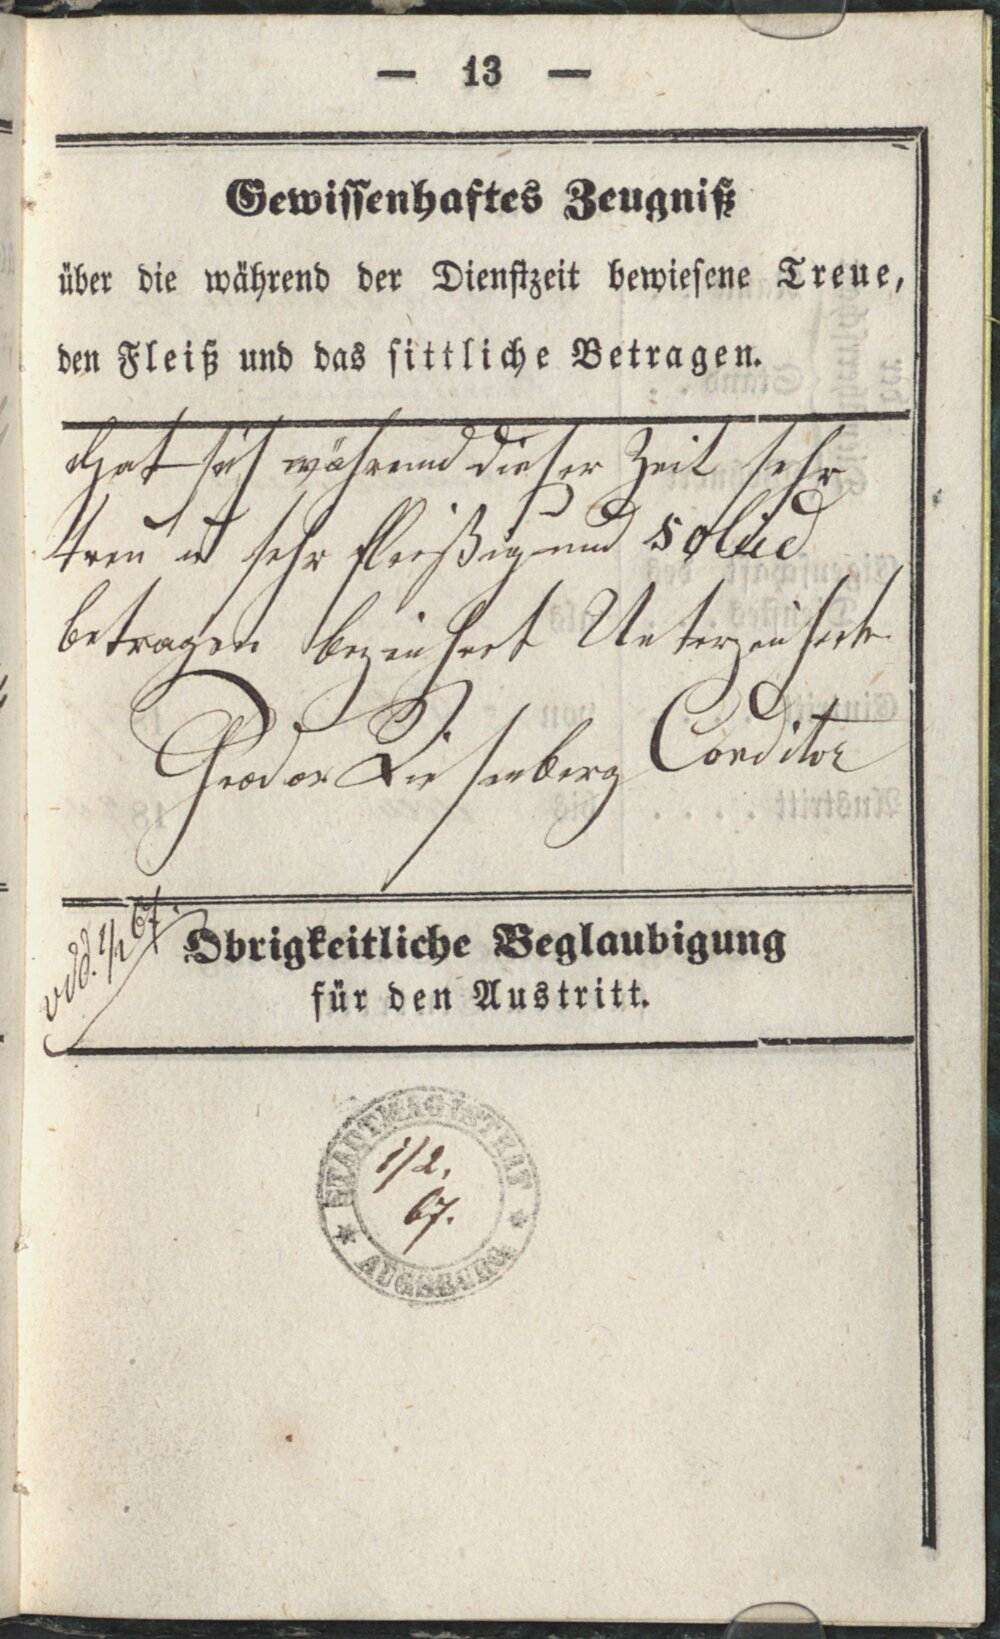 — 13 —
Gewissenhaftes Zeugniß
über die während der Dienstzeit bewiesene Treue,
den Fleiß und das sittliche Betragen.
Hat sich während dieser Zeit sehr
treu u sehr fleißig und solid
betragen bezeichnet Unterzeichnete
Theodor Liesenberg Conditor
vdd. 1/2 67.
Obrigkeitliche Beglaubigung
für den Austritt.
STADTMAGISTRAT
1/2.
67.
* AUGSBURG *